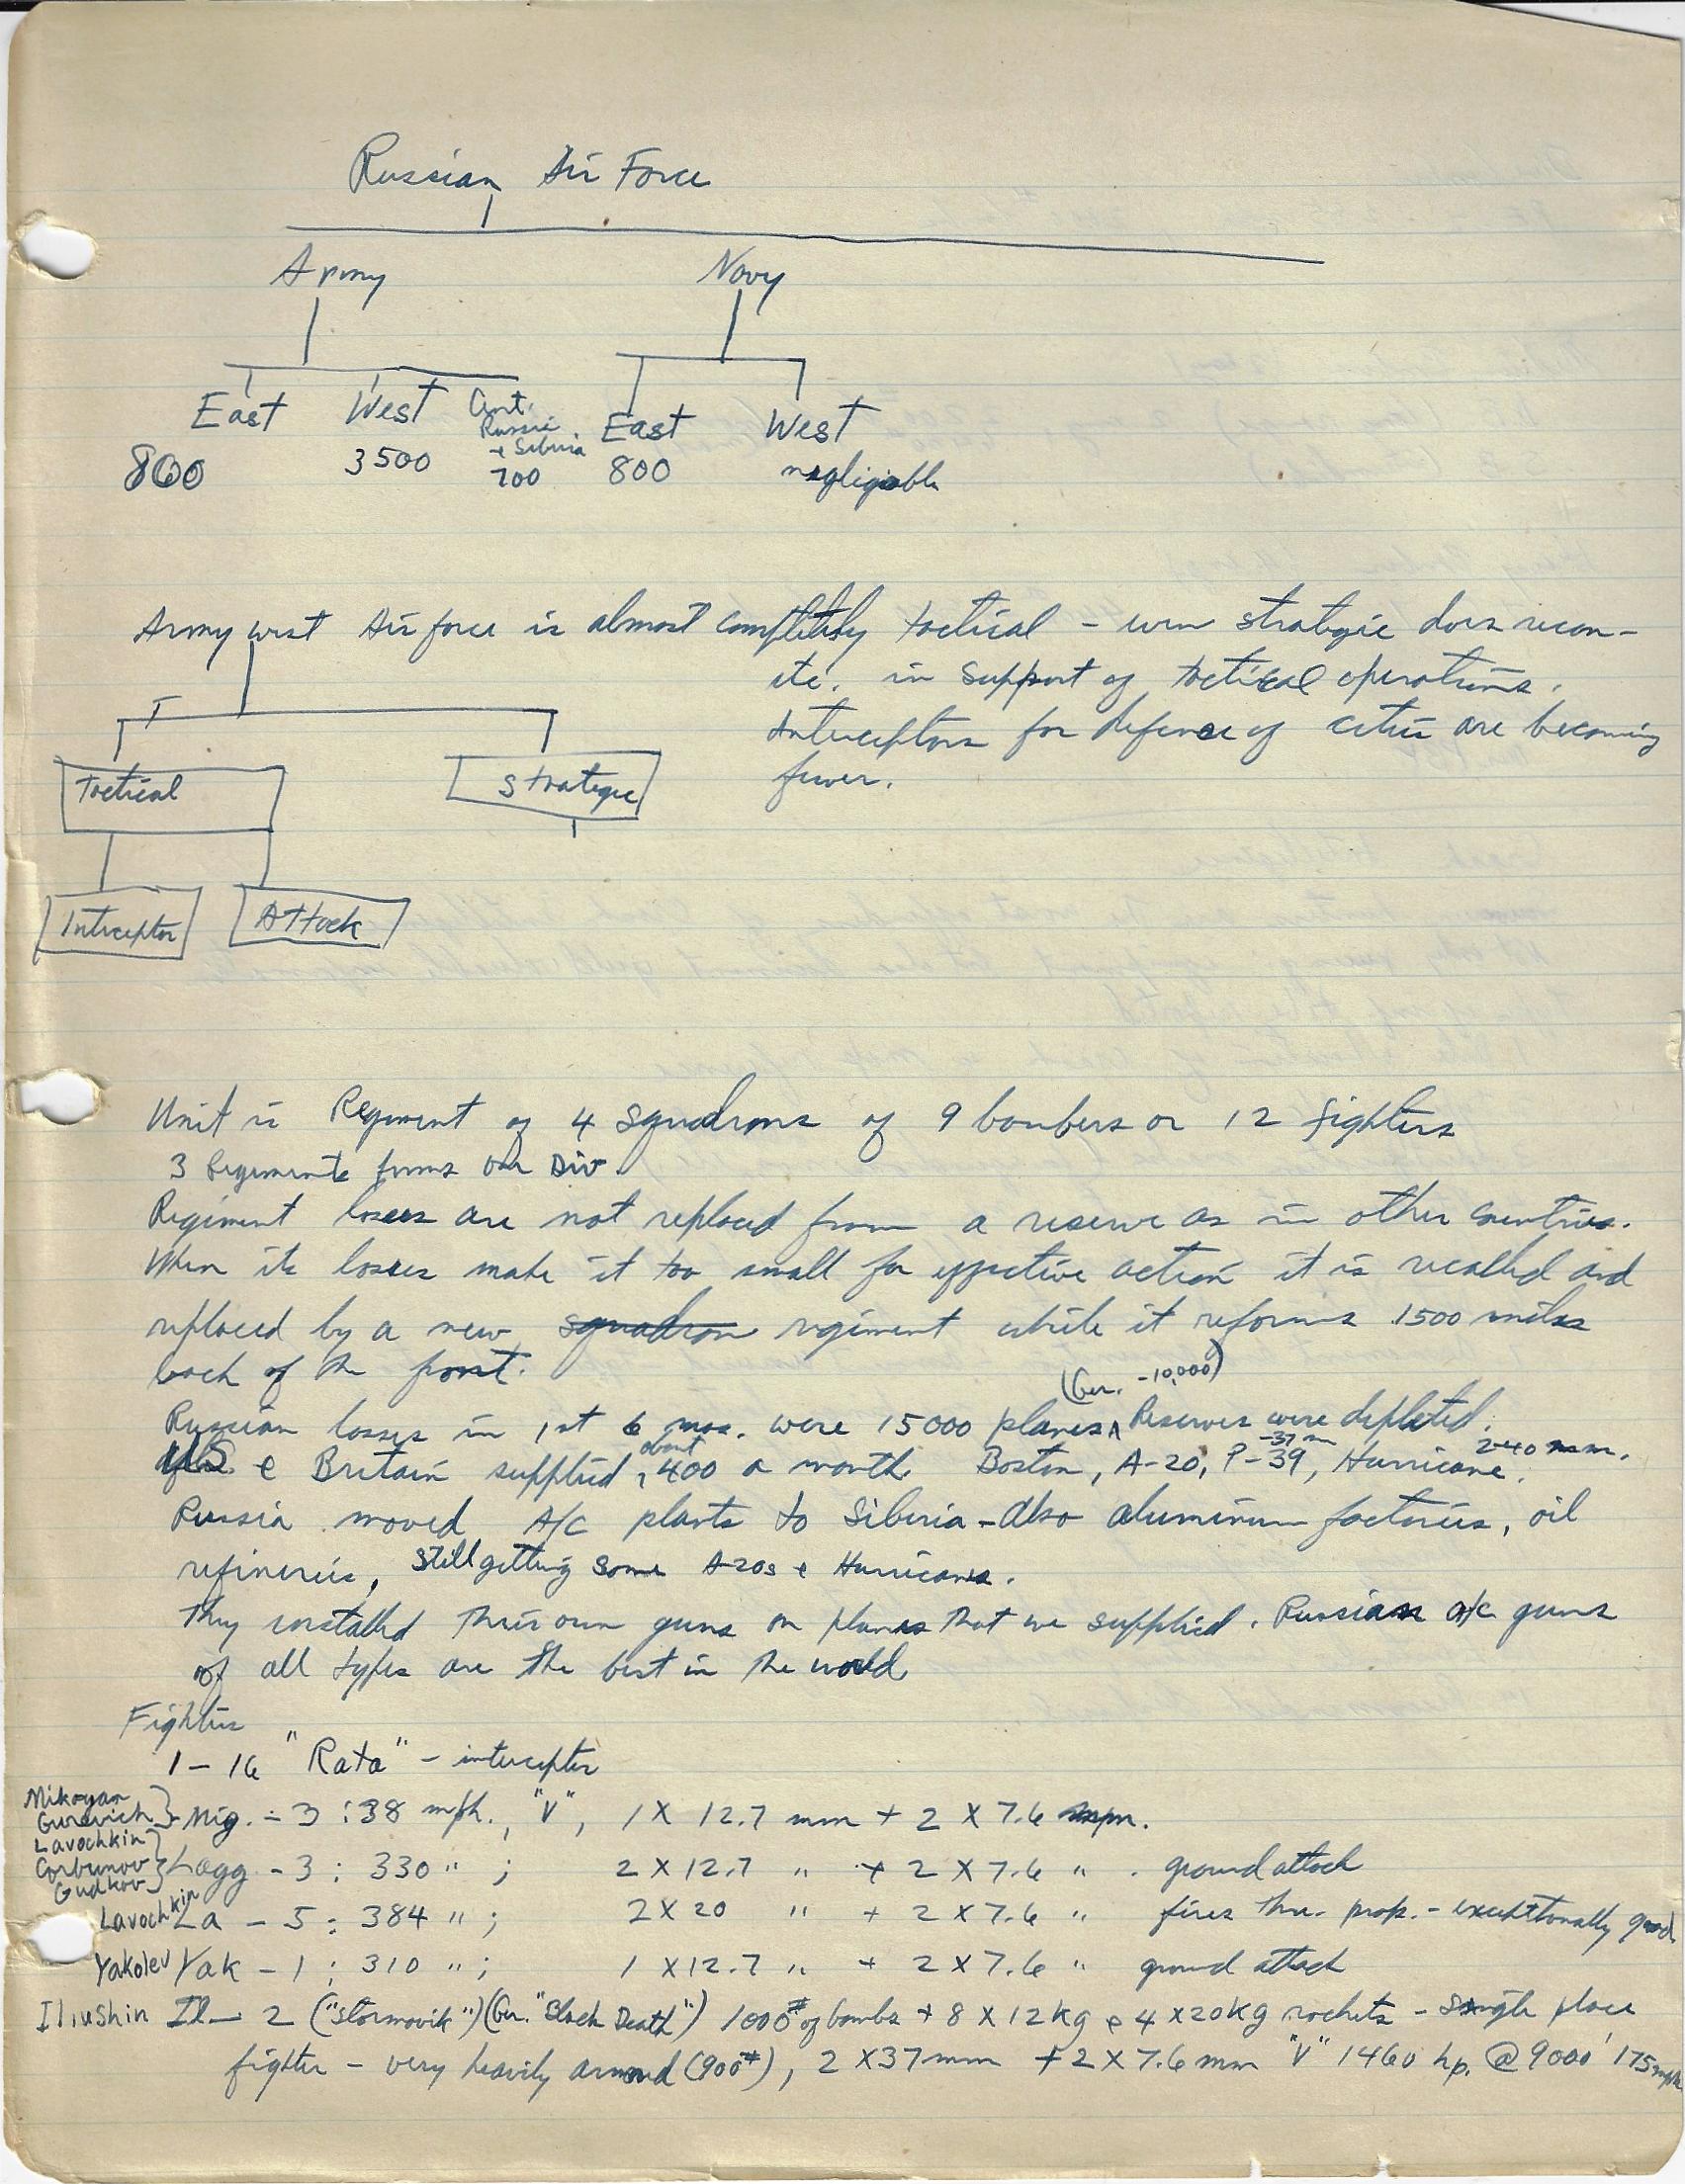 Russian Air Force
Army Navy
East West Cent. Russia + Siberia East West
800 3500 700 800 negligible
Army west Air force is almost completely tactical – even strategic does recon–
etc. in support of tactical operations.
Interceptors for defence of cities are becoming
fewer.
Tactical Strategic
Interceptor Attack
Unit is Regiment of 4 squadrons of 9 bombers or 12 fighters
3 Regiments forms one Div.
Regiment losses are not replaced from a reserve as in other countries.
When its losses make it too small for effective action it is recalled and
replaced by a new squadron regiment while it reforms 1500 miles
back of the front.
(Ger. -10,000)
Russian losses in 1st 6 mos. were 15000 planes Reserves were depleted.
US & Britain supplied about 400 a month Boston, A-20, P-39 -37 mm, Hurricane 2-40 mm.
Russia moved A/C plants to Siberia – also aluminum factories, oil
refineries, still getting some A-20s & Hurricanes.
They installed their own guns on planes that we supplied. Russian a/c guns
of all types are the best in the world
Fighters
1-16 "Rata" – interceptor
Mikoyan
Gurevich } Mig. – 3 : 38 mph., "V", 1 X 12.7 mm + 2 X 7.6 mm.
Lavochkin
Corbunov
Gudkov } Lagg – 3 : 330 " ; 2 X 12.7 " + 2 X 7.6 " . ground attack
Lavochkin La – 5 : 384 " ; 2 X 20 " + 2 X 7.6 " fires thru. prop. – exceptionally good
Yakolev Yak – 1 : 310 " ; 1 X 12.7 " + 2 X 7.6 " ground attack
Iliushin Il – 2 ("Stormovik") (Ger. "Black Death") 1000# of bombs + 8 X 12 kg & 4 X 20 kg rockets – single place
fighter – very heavily armored (900#), 2 X 37 mm + 2 X 7.6 mm "V" 1460 hp. @ 9000' 175 mph